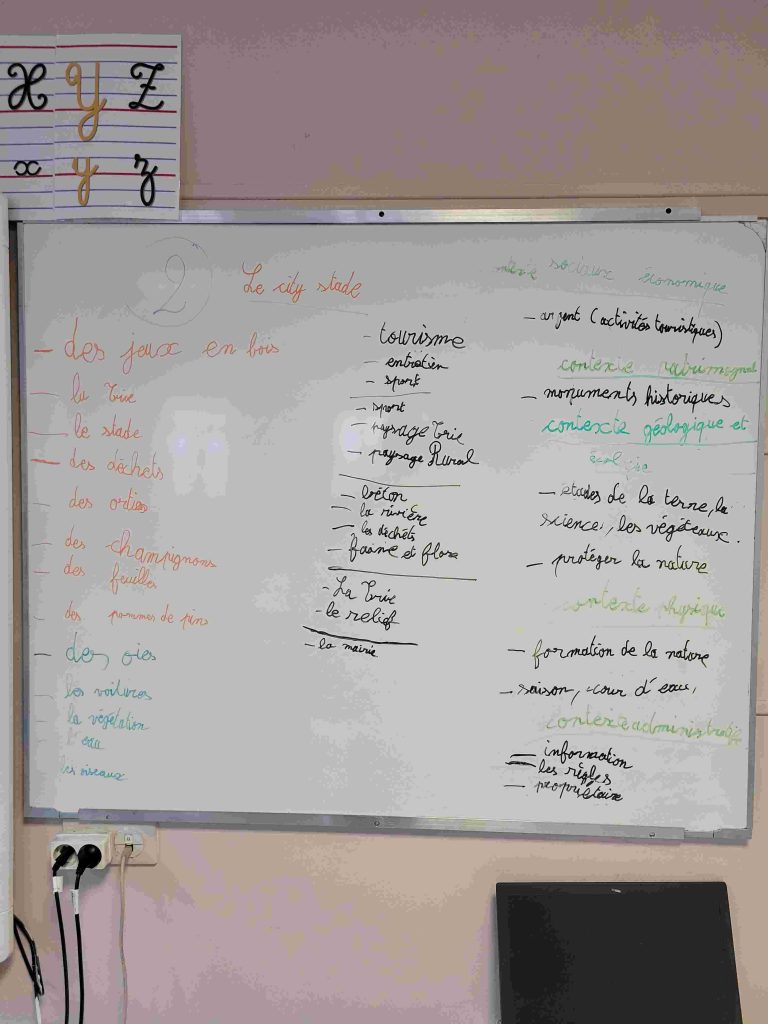 X Y Z
x y z
2
Le city stade
- des jeux en bois
- la Trie
- le stade
- des déchets
- des orties
- des champignons
- des feuilles
- des pommes de pins
- des oies
- les voitures
- la végétation
- l'eau
- les oiseaux
- tourisme
- entretien
- sport
- sport
- paysage Trie
- paysage Rural
- béton
- la rivière
- les déchets
- faune et flore
- La Trie
- le relief
- la mairie
sociaux économique
- argent (activités touristiques)
contexte patrimonial
- monuments historiques
contexte géologique et
- études de la terre, la
science, les végéteaux.
- protéger la nature
contexte physique
- formation de la nature
- saison, cour d'eau,
contexte administratif
- information
- les règles
- propriétaire